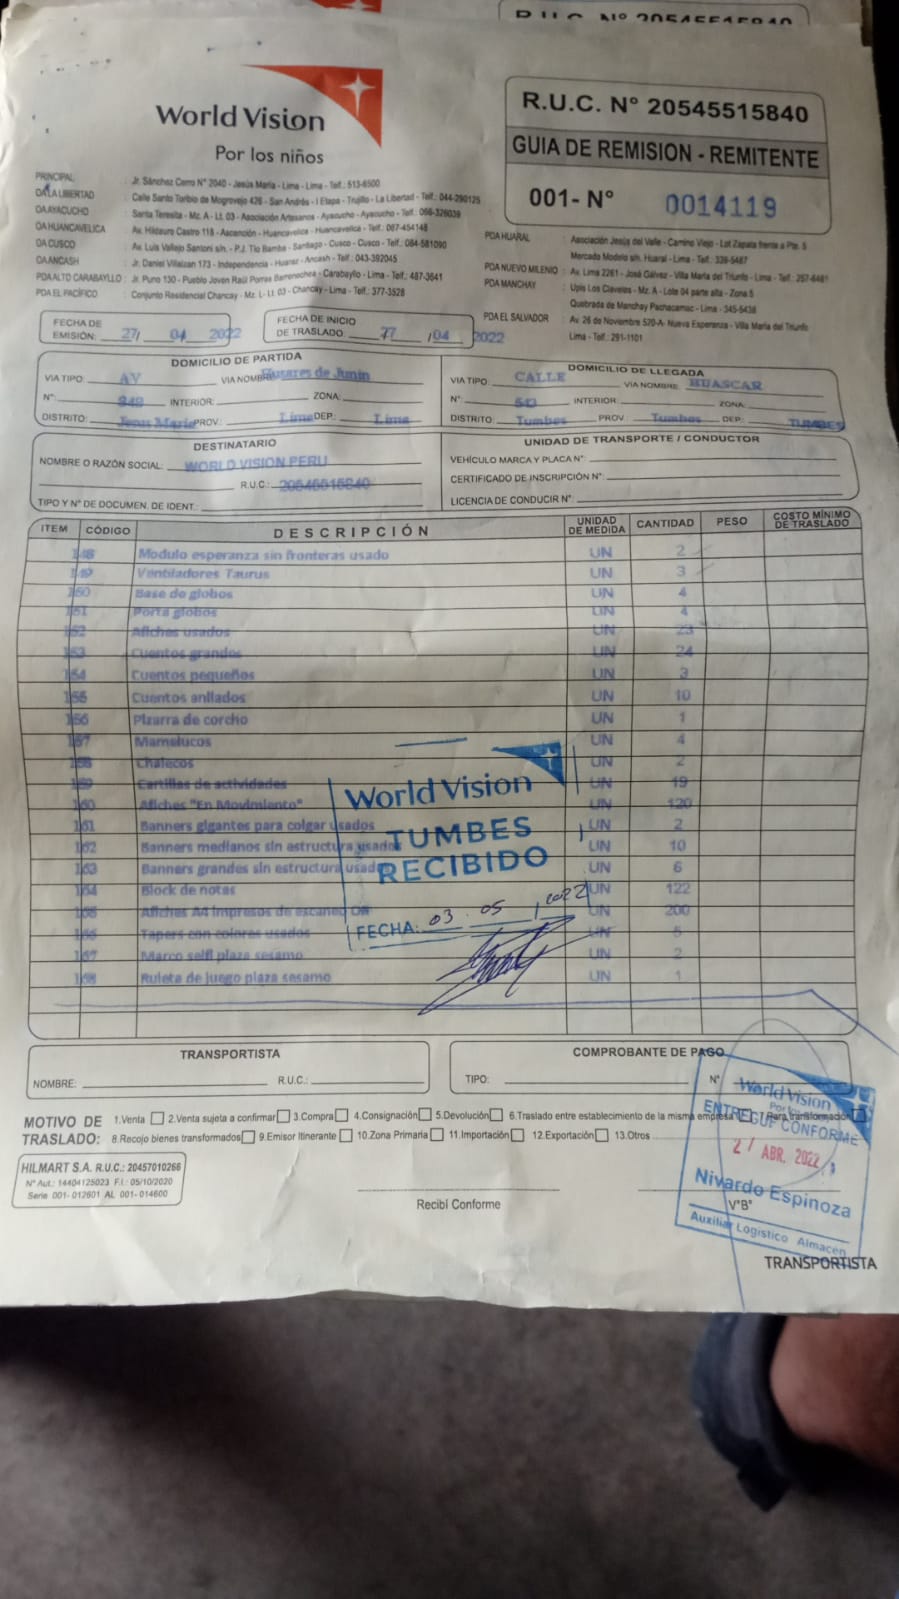 R.U.C. Nº 20545515840
World Vision
Por los niños
R.U.C. Nº 20545515840
GUIA DE REMISION - REMITENTE
001- Nº 0014119
PRINCIPAL : Jr. Sánchez Cerro Nº 2040 - Jesús María - Lima - Lima - Telf.: 513-6500
OA LA LIBERTAD : Calle Santo Toribio de Mogrovejo 426 - San Andrés - I Etapa - Trujillo - La Libertad - Telf: 044-290125
OA AYACUCHO : Santa Teresita - Mz. A - Lt. 03 - Asociación Artesanos - Ayacucho - Ayacucho - Telf: 066-326039
OA HUANCAVELICA : Av. Hildauro Castro 118 - Ascención - Huancavelica - Huancavelica - Telf.: 067-454148
OA CUSCO : Av. Luis Vallejo Santoni s/n. - P.J. Tio Bamba - Santiago - Cusco - Cusco - Telf.: 084-581090
OA ANCASH : Jr. Daniel Villaizan 173 - Independencia - Huaraz - Ancash - Telf.: 043-392045
PDA ALTO CARABAYLLO : Jr. Puno 130 - Pueblo Joven Raúl Porras Barrenechea - Carabayllo - Lima - Telf.: 487-3641
PDA EL PACÍFICO : Conjunto Residencial Chancay - Mz. L - Lt. 03 - Chancay - Lima - Telf.: 377-3528
PDA HUARAL : Asociación Jesús del Valle - Camino Viejo - Lot Zapata frente a Pte. 5
Mercado Modelo s/n. Huaral - Lima - Telf.: 339-5487
PDA NUEVO MILENIO : Av. Lima 2261 - José Gálvez - Villa María del Triunfo - Lima - Telf.: 257-6481
PDA MANCHAY : Upis Los Claveles - Mz. A - Lote 04 parte alta - Zona 5
Quebrada de Manchay Pachacamac - Lima - 345-5438
PDA EL SALVADOR : Av. 26 de Noviembre 520-A- Nueva Esperanza - Villa María del Triunfo
Lima - Telf.: 291-1101
FECHA DE EMISIÓN: 27/ 04 2022
FECHA DE INICIO DE TRASLADO 27 /04 2022
DOMICILIO DE PARTIDA
VIA TIPO: AV VIA NOMBRE: Husares de Junin
Nº: INTERIOR: ZONA:
DISTRITO: Jesus Maria PROV.: Lima DEP.: Lima
DOMICILIO DE LLEGADA
VIA TIPO: CALLE VIA NOMBRE: HUASCAR
Nº: INTERIOR: ZONA:
DISTRITO: Tumbes PROV.: Tumbes DEP.: TUMBES
DESTINATARIO
NOMBRE O RAZÓN SOCIAL: WORLD VISION PERU
R.U.C.: 20545515840
TIPO Y Nº DE DOCUMEN. DE IDENT.:
UNIDAD DE TRANSPORTE / CONDUCTOR
VEHÍCULO MARCA Y PLACA Nº:
CERTIFICADO DE INSCRIPCIÓN Nº:
LICENCIA DE CONDUCIR Nº:
ITEM CÓDIGO DESCRIPCIÓN UNIDAD DE MEDIDA CANTIDAD PESO COSTO MÍNIMO DE TRASLADO
148 Modulo esperanza sin fronteras usado UN 2
149 Ventiladores Taurus UN 3
150 Base de globos UN 4
151 Porta globos UN 4
152 Afiches usados UN 23
153 Cuentos grandes UN 24
154 Cuentos pequeños UN 3
155 Cuentos anllados UN 10
156 Pizarra de corcho UN 1
157 Mamelucos UN 4
158 Chalecos UN 2
159 Cartillas de actividades UN 19
160 Afiches "En Movimiento" UN 120
161 Banners gigantes para colgar usados UN 2
162 Banners medianos sin estructura usados UN 10
163 Banners grandes sin estructura usados UN 6
164 Block de notas UN 122
165 Afiches A4 impresos de escaneo UN 200
166 Tapers con colores usados UN 5
167 Marco selfi plaza sesamo UN 2
168 Ruleta de juego plaza sesamo UN 1
World Vision
TUMBES
RECIBIDO
FECHA: 03 . 05 / 2022
TRANSPORTISTA
NOMBRE: R.U.C.:
COMPROBANTE DE PAGO
TIPO: Nº
MOTIVO DE TRASLADO: 1.Venta 2.Venta sujeta a confirmar 3.Compra 4.Consignación 5.Devolución 6.Traslado entre establecimiento de la misma empresa Para transformación
8.Recojo bienes transformados 9.Emisor Itinerante 10.Zona Primaria 11.Importación 12.Exportación 13.Otros
HILMART S.A. R.U.C.: 20457010266
Nº Aut.: 14404125023 F.I.: 05/10/2020
Serie 001- 012601 AL 001- 014600
Recibí Conforme
VºBº
TRANSPORTISTA
World Vision
Por los
ENTREGUE CONFORME
27 ABR. 2022
Nivardo Espinoza
Auxiliar Logístico Almacen